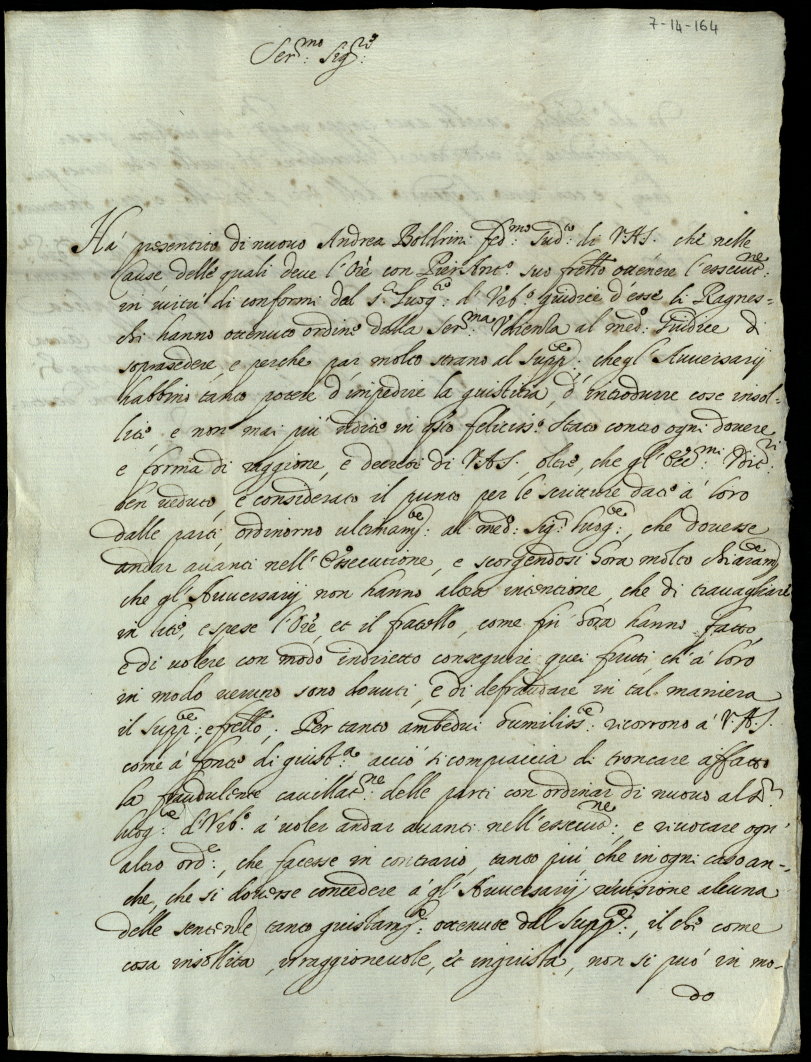 7-14-164
Ser.mo Sig.re
Hà presentito di nuovo Andrea Boldrini fed.mo Sud.to di V.A.S. che nelle
Cause, delle quali deve l'Ore con Pier Ant.o suo fretto ottenere l'essecut.ne
in virtù di conformi dal s.r Luog.te d'Urb.o giudice d'esse li Ragnes-
chi hanno ottenuto ordine dalla Ser.ma Udienza al med.o Giudice di
soprasedere, e perche par molto strano al Supp.te, che gl'Auversarij
habbino tanto potere d'impedire la giustitia, d'introdurre cose insol-
lite, e non mai più udite in q.sto feliciss.o Stato contro ogni dovere,
e forma di raggione, e decreti di V.A.S., oltre, che gl'Ecc.mi Udit.ri
ben veduto, e considerato il punto per le scritture date à loro
dalle parti ordinorno ultimam.te al med.o Sig.r Luog.te, che dovesse
andar avanti nell'Essecutione, e scorgendosi hora molto chiaram.te
che gl'Auversarij non hanno altra intentione, che di travagliare
in lite, e spese l'Ore, et il fratello, come fin hora hanno fatto
e di volere con modo indiretto conseguire quei frutti ch'à loro
in modo veruno sono dovuti, e di defraudare in tal maniera
il Supp.te, e frello, Per tanto ambedui humiliss.e ricorrono à V.A.S.
come à fonte di giust.a acciò si compiaccia di troncare affatto
la fraudulente cavillat.ne delle parti con ordinar di nuovo al s.r
Luog.te d'Urb.o à voler andar avanti nell'essecut.ne, e rivocare ogni
altro ord.e, che facesse in contrario, tanto più che in ogni caso an-
che, che si dovesse concedere à gl'Auversarij revisione alcuna
delle sentenze tanto giustam.te ottenute dal Supp.te, il che come
cosa insollita, irraggionevole, et ingiusta, non si può in mo-
do